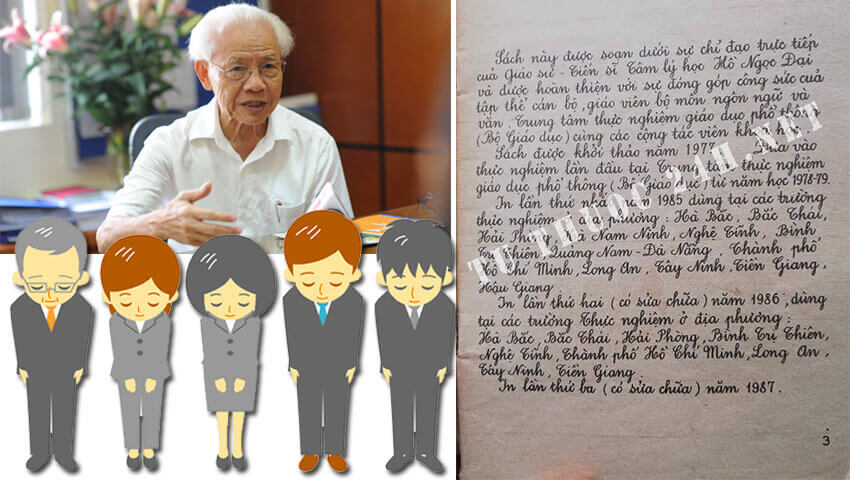 Sách này được soạn dưới sự chỉ đạo trực tiếp
của Giáo sư - Tiến sĩ Tâm lý học Hồ Ngọc Đại
và được hoàn thiện với sự đóng góp công sức của
tập thể cán bộ, giáo viên bộ môn ngôn ngữ và
văn, Trung tâm thực nghiệm giáo dục phổ thông
(Bộ Giáo dục) cùng các cộng tác viên khoa học.
Sách được khởi thảo năm 1977. Đưa vào
thực nghiệm lần đầu tại Trung tâm thực nghiệm
giáo dục phổ thông (Bộ Giáo dục) từ năm học 1978-79.
In lần thứ nhất năm 1985 dùng tại các trường
thực nghiệm ở địa phương: Hà Bắc, Bắc Thái,
Hải Phòng, Hà Nam Ninh, Nghệ Tĩnh, Bình
Trị Thiên, Quảng Nam - Đà Nẵng, Thành phố
Hồ Chí Minh, Long An, Tây Ninh, Tiền Giang,
Hậu Giang
In lần thứ hai (có sửa chữa) năm 1986, dùng
tại các trường Thực nghiệm ở địa phương:
Hà Bắc, Bắc Thái, Hải Phòng, Bình Trị Thiên,
Nghệ Tĩnh, Thành phố Hồ Chí Minh, Long An,
Tây Ninh, Tiền Giang.
In lần thứ ba (có sửa chữa) năm 1987.
3
TU THUOC 24H.NET